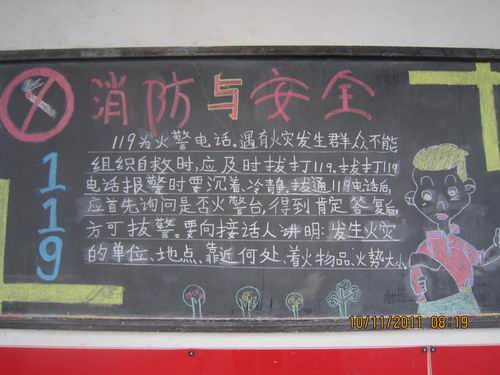 消防与安全
119
119为火警电话。遇有火灾发生群众不能
组织自救时,应及时拔打119。拔打119
电话报警时要沉着、冷静,拔通119电话后,
应首先询问是否火警台,得到肯定答复后,
方可拔警。要向接话人讲明:发生火灾
的单位、地点、靠近何处、着火物品、火势大小,
10/11/2011 08:19